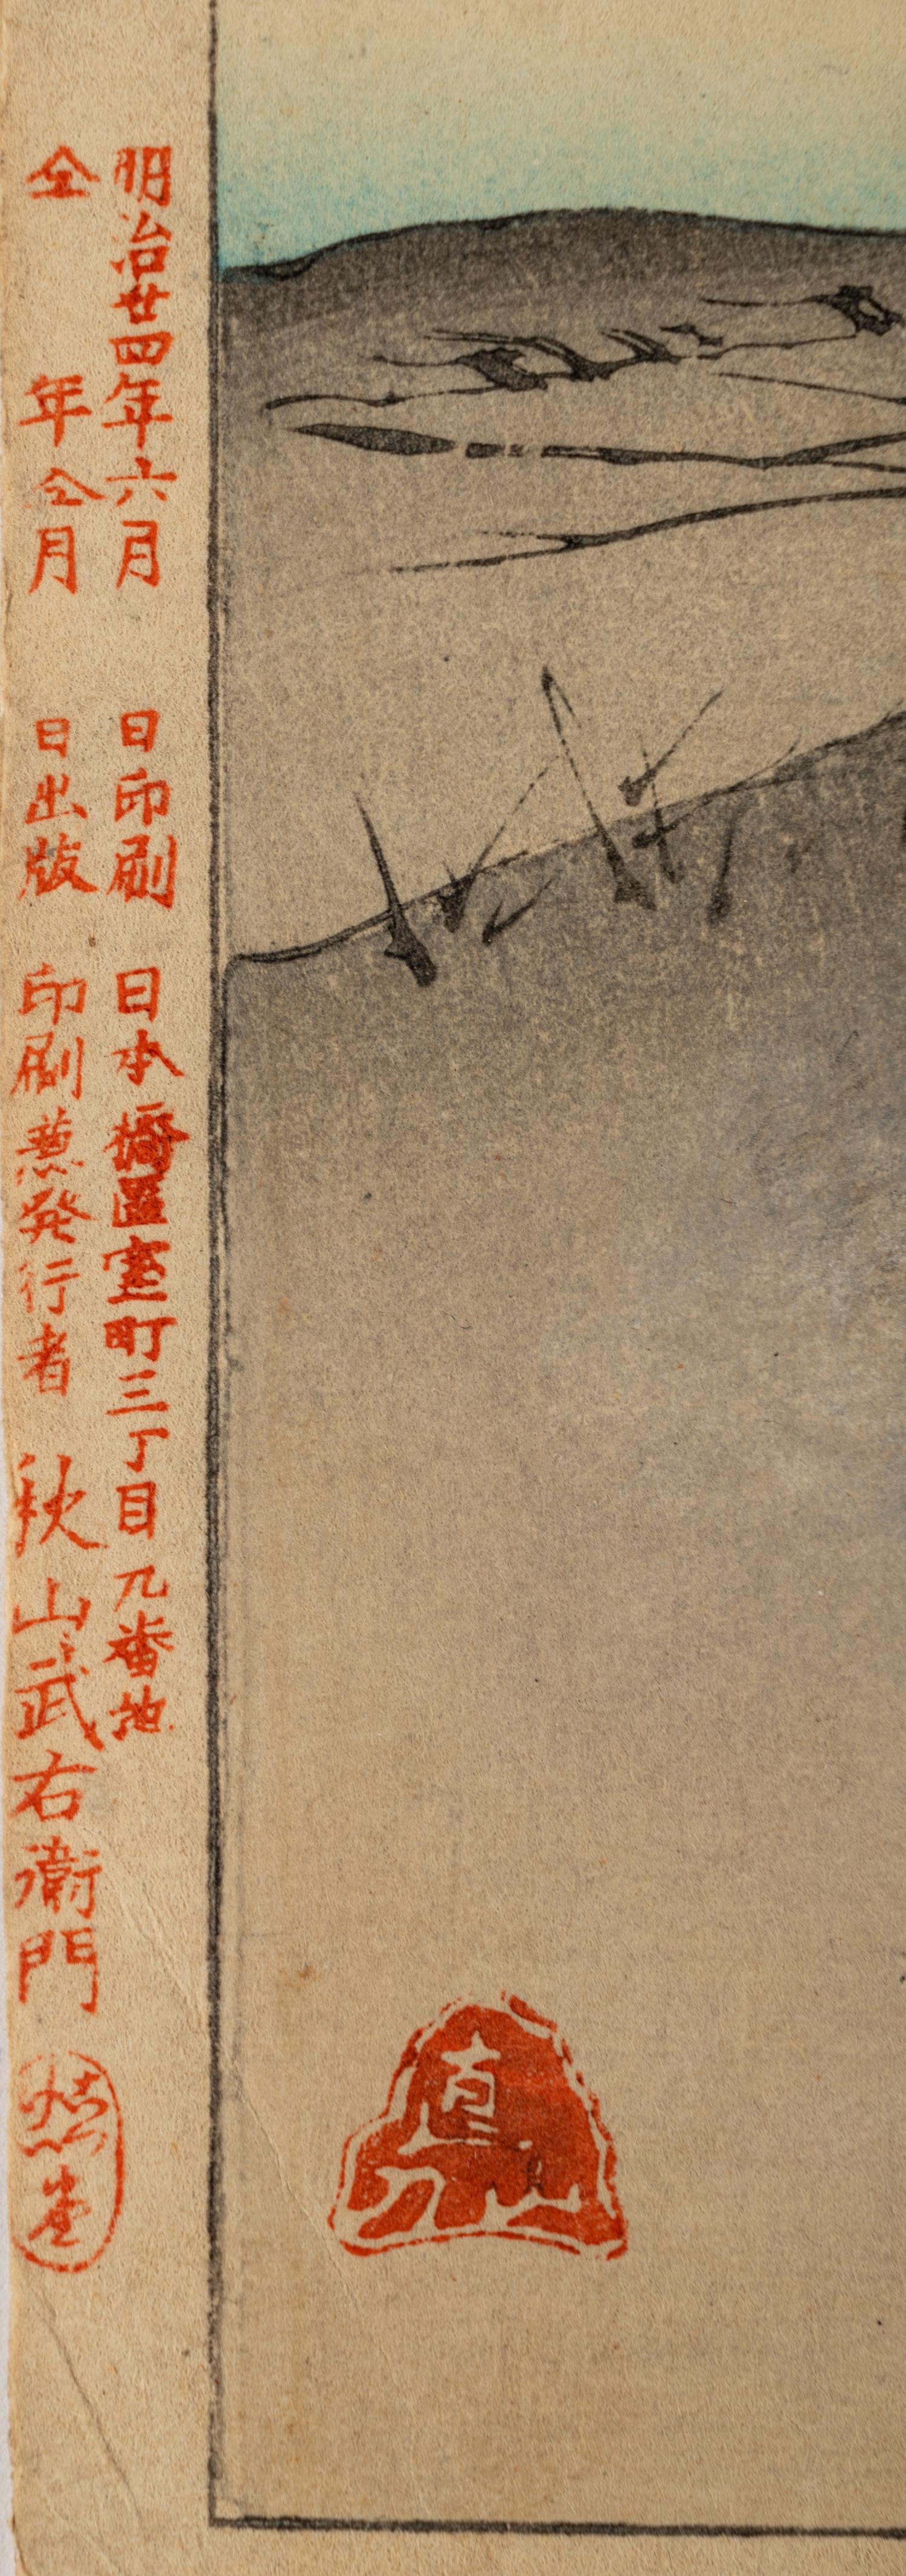 明治廿四年六月　日印刷　日本橋區室町三丁目九番地
仝　年仝月　日出版　印刷兼発行者　秋山武右衛門